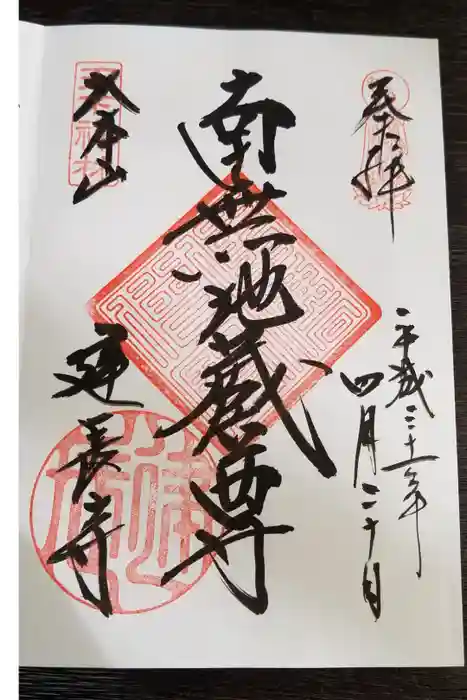 奉拝
平成三十一年
四月二十日
南無地蔵尊
大本山
建長寺